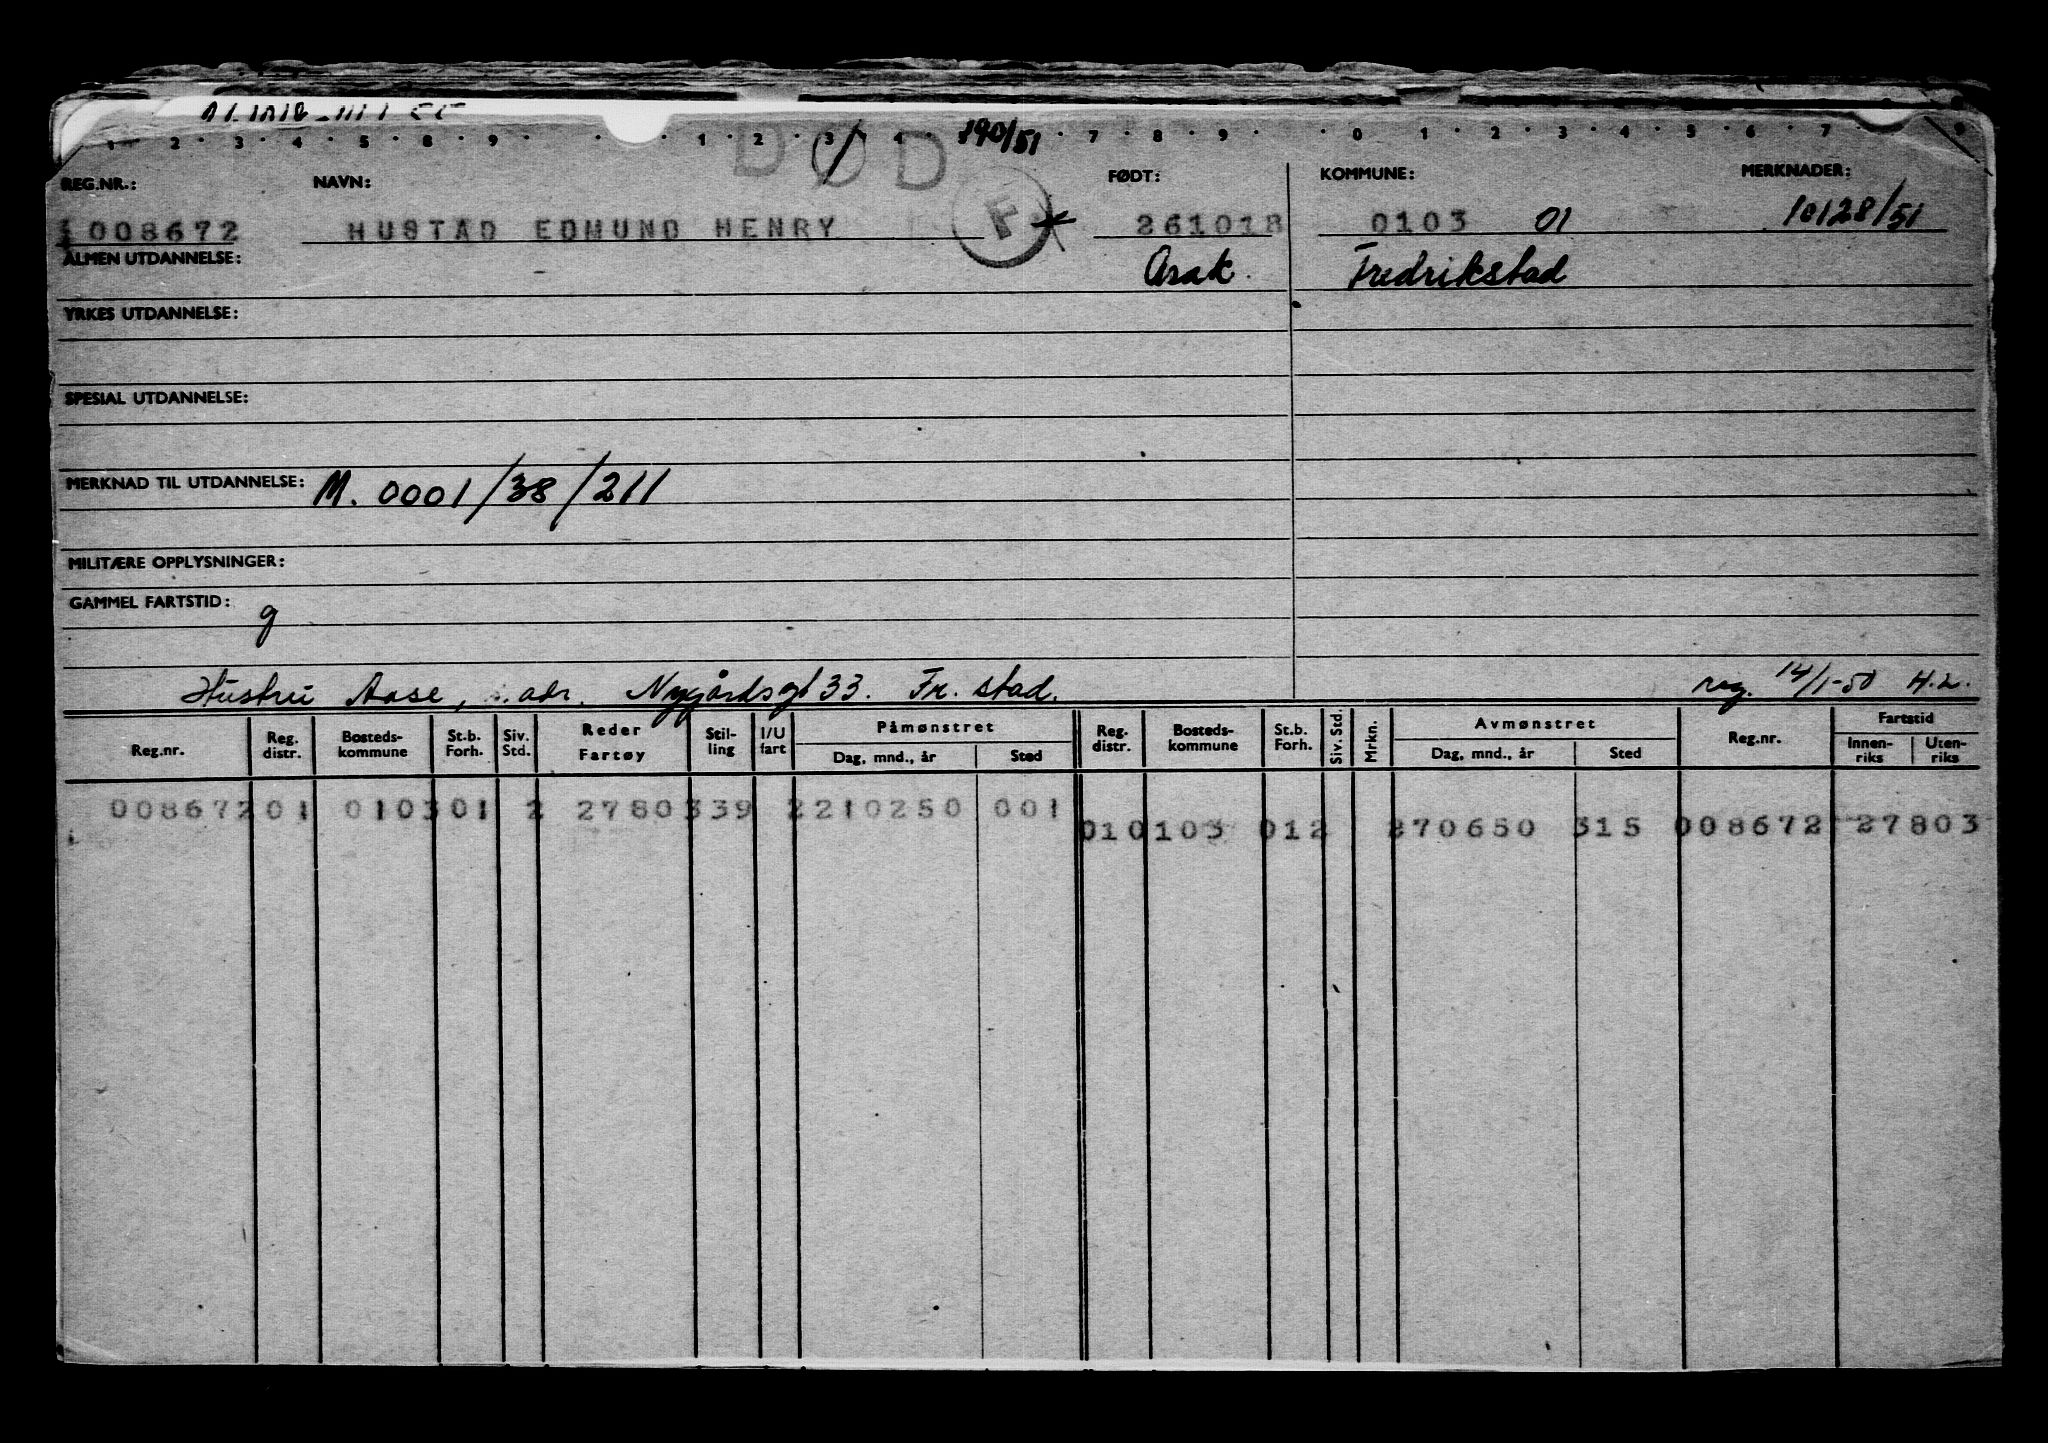 1 2 3 4 5 8 9 1 2 3 4 7 8 9 0 1 2 3 4 5 6 7 9
DØD 190/51
REG.NR.: NAVN: FØDT: KOMMUNE: MERKNADER:
008672 HUSTAD EDMUND HENRY F 261018 0103 01 10128/51
ALMEN UTDANNELSE: Asak. Fredrikstad
YRKES UTDANNELSE:
SPESIAL UTDANNELSE:
MERKNAD TIL UTDANNELSE: M. 0001/38/211
MILITÆRE OPPLYSNINGER:
GAMMEL FARTSTID: g
Hustru Aase, adr. Nygårdsgt 33. Fr. stad. reg. 14/1-50 H.L.
Reg.nr. Reg. distr. Bosteds-kommune St.b. Forh. Siv. Std. Reder Fartøy Stil-ling I/U fart Påmønstret Dag, mnd., år Sted Reg. distr. Bosteds-kommune St.b. Forh. Siv. Std. Mrkn. Avmønstret Dag, mnd., år Sted Reg.nr. Fartstid Innen-riks Uten-riks
008672 01 0103 01 2 2780 339 2210250 001
010103 012 270650 315 008672 27803